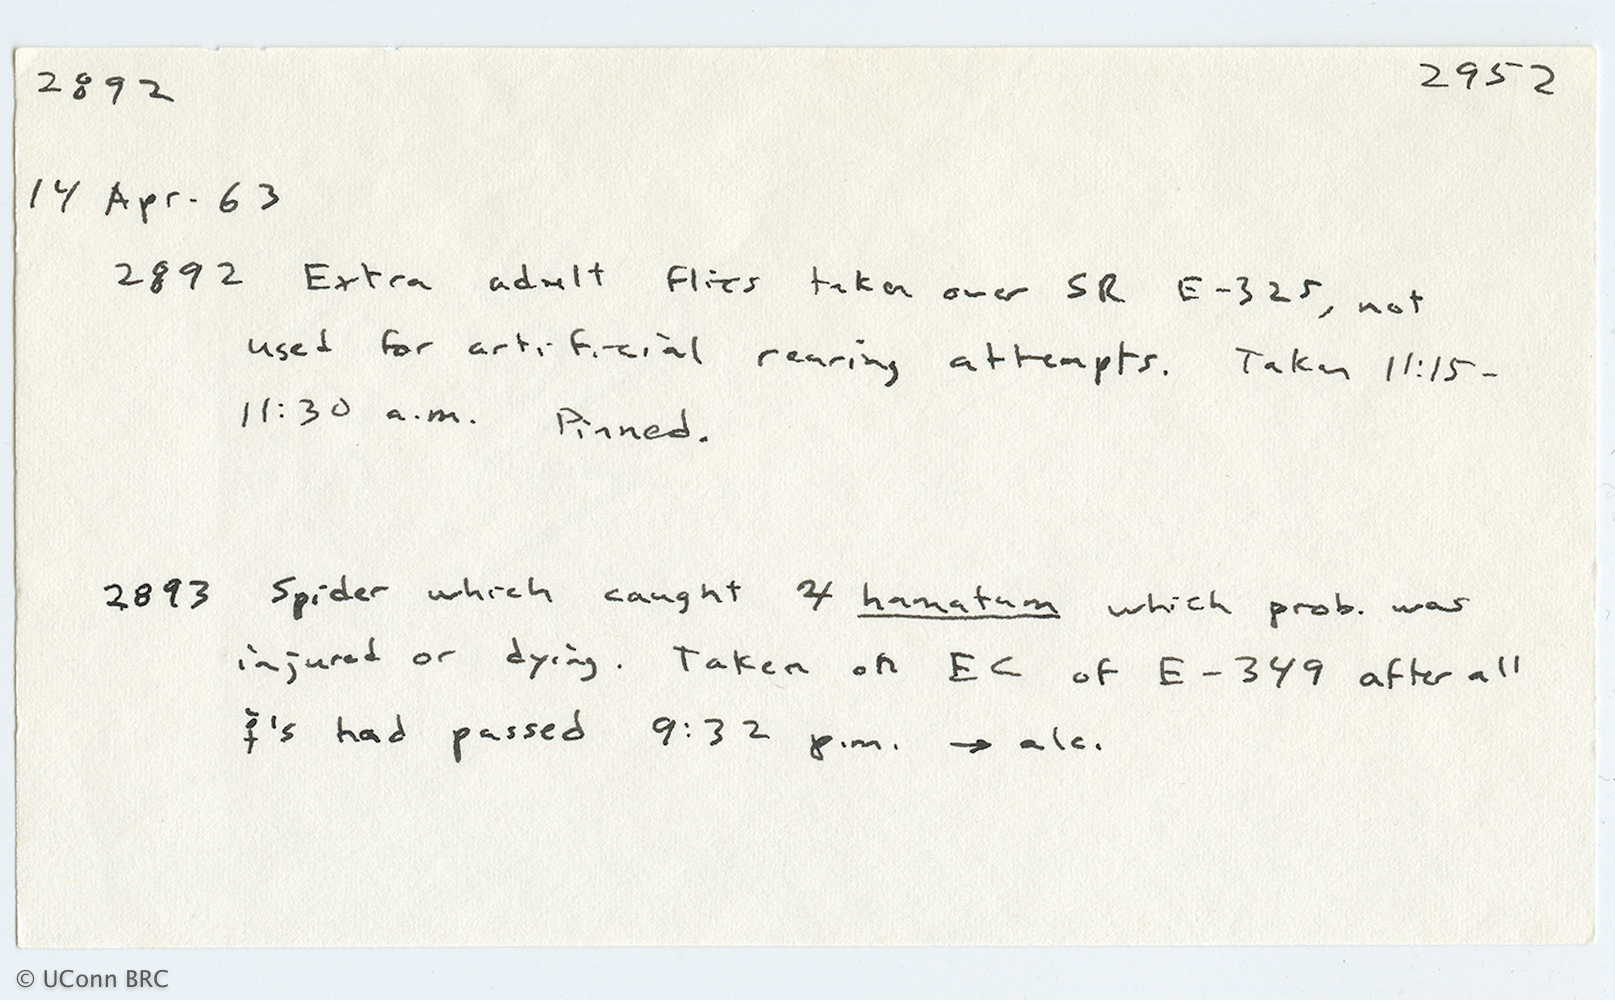 2892 2952
14 Apr. 63
2892 Extra adult flies taken over SR E-325, not
used for artificial rearing attempts. Taken 11:15-
11:30 a.m. Pinned.
2893 Spider which caught hamatum which prob. was
injured or dying. Taken on EC of E-349 after all
's had passed 9:32 p.m. → alc.
© UConn BRC